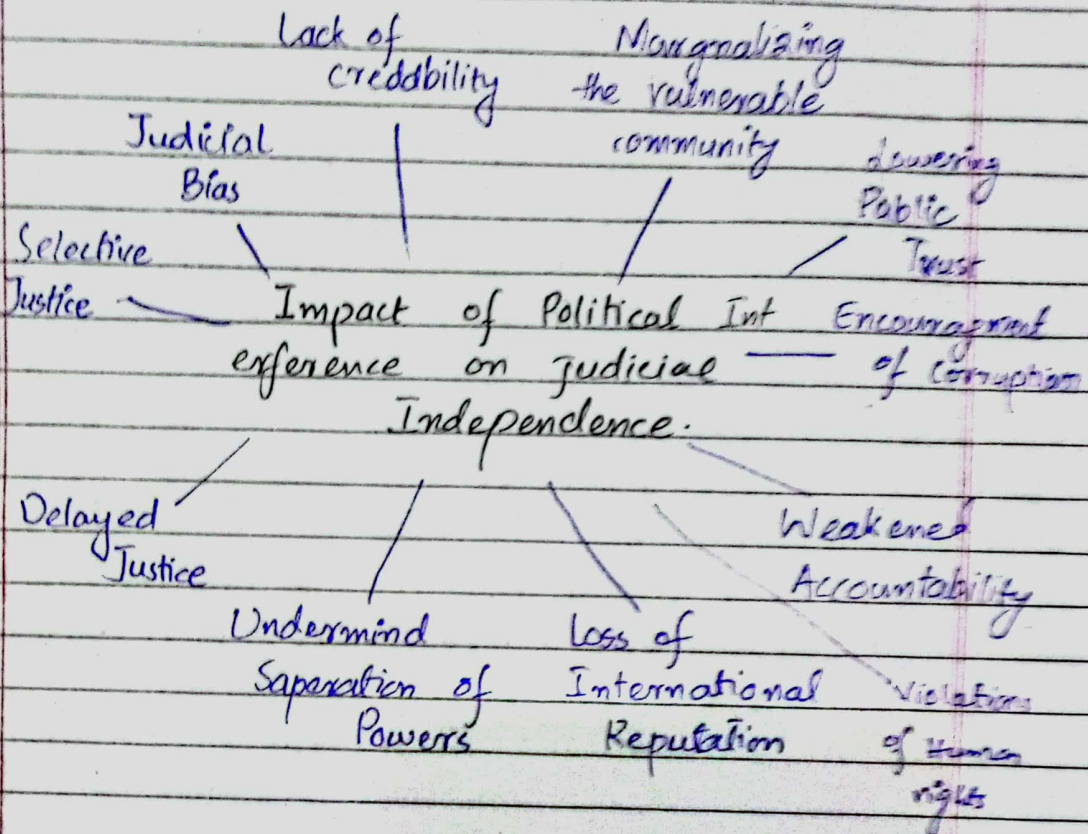 Lack of
creddbility
Marginalizing
the vulnerable
community
Judicial
Bias
Lowering
Public
Trust
Selective
Justice
Impact of Political Int
erference on judicial
Independence.
Encouragment
of Corruption
Delayed
Justice
Weakened
Accountability
Undermind
Saparation of
Powers
Loss of
International
Reputation
Violations
of Human
rights